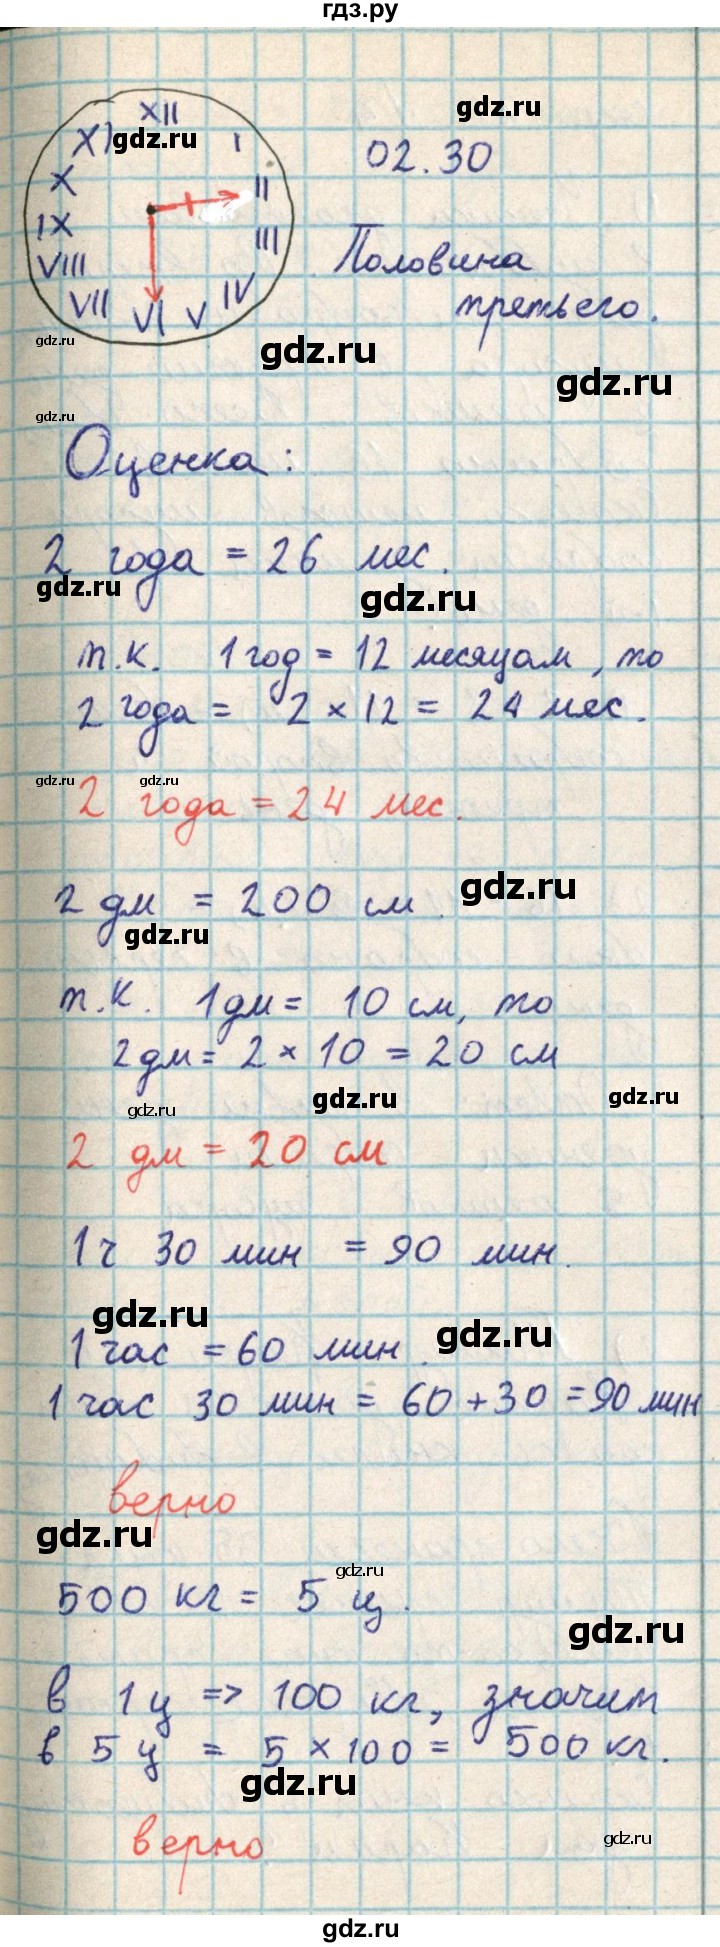 гдз.ру
XII
XI
I
gdz.ru
gdz.ru
02.30
X
II
IX
III
VIII
IV
VII
V
VI
Половина
третьего.
gdz.ru
gdz.ru
gdz.ru
gdz.ru
Оценка:
2 года = 26 мес.
gdz.ru
gdz.ru
т.к. 1 год = 12 месяцам, то
2 года = 2 × 12 = 24 мес.
gdz.ru
gdz.ru
2 года = 24 мес.
gdz.ru
2 дм = 200 см.
gdz.ru
т.к. 1 дм = 10 см, то
2 дм = 2 × 10 = 20 см
gdz.ru
gdz.ru
gdz.ru
2 дм = 20 см
1 ч 30 мин = 90 мин.
gdz.ru
gdz.ru
1 час = 60 мин.
1 час 30 мин = 60 + 30 = 90 мин
верно
gdz.ru
gdz.ru
500 кг = 5 ц.
gdz.ru
в 1 ц => 100 кг, значит
в 5 ц = 5 × 100 = 500 кг.
gdz.ru
верно
gdz.ru
gdz.ru